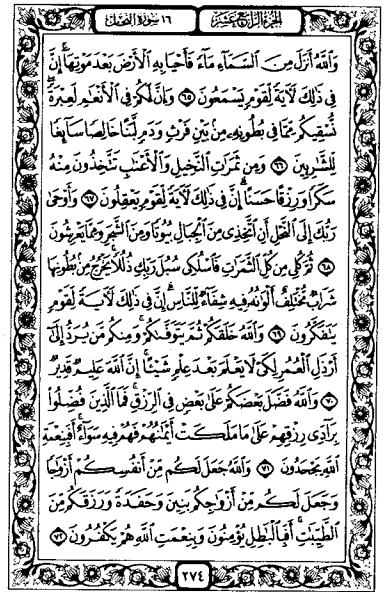 الجزء الرابع عشر ١٦ سورة النحل
وَاللَّهُ أَنزَلَ مِنَ السَّمَاءِ مَاءً فَأَحْيَا بِهِ الْأَرْضَ بَعْدَ مَوْتِهَا ۚ إِنَّ
فِي ذَٰلِكَ لَآيَةً لِّقَوْمٍ يَسْمَعُونَ ٦٥ وَإِنَّ لَكُمْ فِي الْأَنْعَٰمِ لَعِبْرَةً ۖ
نُّسْقِيكُم مِّمَّا فِي بُطُونِهِ مِن بَيْنِ فَرْثٍ وَدَمٍ لَّبَنًا خَالِصًا سَآئِغًا
لِّلشَّٰرِبِينَ ٦٦ وَمِن ثَمَرَٰتِ النَّخِيلِ وَالْأَعْنَٰبِ تَتَّخِذُونَ مِنْهُ
سَكَرًا وَرِزْقًا حَسَنًا ۗ إِنَّ فِي ذَٰلِكَ لَآيَةً لِّقَوْمٍ يَعْقِلُونَ ٦٧ وَأَوْحَىٰ
رَبُّكَ إِلَى النَّحْلِ أَنِ اتَّخِذِي مِنَ الْجِبَالِ بُيُوتًا وَمِنَ الشَّجَرِ وَمِمَّا يَعْرِشُونَ
٦٨ ثُمَّ كُلِي مِن كُلِّ الثَّمَرَٰتِ فَاسْلُكِي سُبُلَ رَبِّكِ ذُلُلًا ۚ يَخْرُجُ مِن بُطُونِهَا
شَرَابٌ مُّخْتَلِفٌ أَلْوَٰنُهُ فِيهِ شِفَآءٌ لِّلنَّاسِ ۗ إِنَّ فِي ذَٰلِكَ لَآيَةً لِّقَوْمٍ
يَتَفَكَّرُونَ ٦٩ وَاللَّهُ خَلَقَكُمْ ثُمَّ يَتَوَفَّىٰكُمْ ۚ وَمِنكُم مَّن يُرَدُّ إِلَىٰ
أَرْذَلِ الْعُمُرِ لِكَيْ لَا يَعْلَمَ بَعْدَ عِلْمٍ شَيْئًا ۚ إِنَّ اللَّهَ عَلِيمٌ قَدِيرٌ
٧٠ وَاللَّهُ فَضَّلَ بَعْضَكُمْ عَلَىٰ بَعْضٍ فِي الرِّزْقِ ۚ فَمَا الَّذِينَ فُضِّلُوا
بِرَآدِّي رِزْقِهِمْ عَلَىٰ مَا مَلَكَتْ أَيْمَٰنُهُمْ فَهُمْ فِيهِ سَوَآءٌ ۚ أَفَبِنِعْمَةِ
اللَّهِ يَجْحَدُونَ ٧١ وَاللَّهُ جَعَلَ لَكُم مِّنْ أَنفُسِكُمْ أَزْوَٰجًا
وَجَعَلَ لَكُم مِّنْ أَزْوَٰجِكُم بَنِينَ وَحَفَدَةً وَرَزَقَكُم مِّنَ
الطَّيِّبَٰتِ ۚ أَفَبِالْبَٰطِلِ يُؤْمِنُونَ وَبِنِعْمَتِ اللَّهِ هُمْ يَكْفُرُونَ ٧٢
٢٧٤